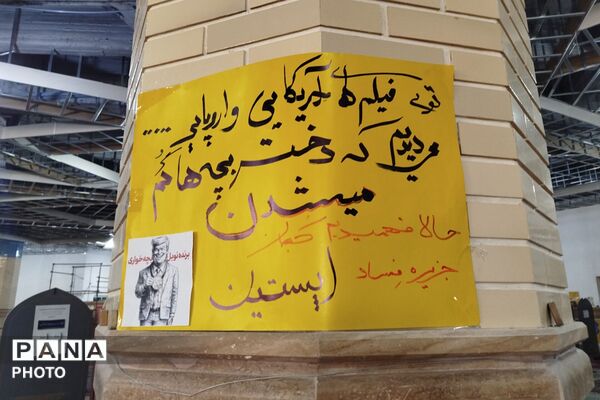 توی
فیلم های آمریکایی و اروپایی....
می دیدیم که دختر بچه ها گم
میشدن
حالا فهمیدیم کجان
جزیره فساد
اپستین
برنده نوبل بچه خواری
PANA
PHOTO